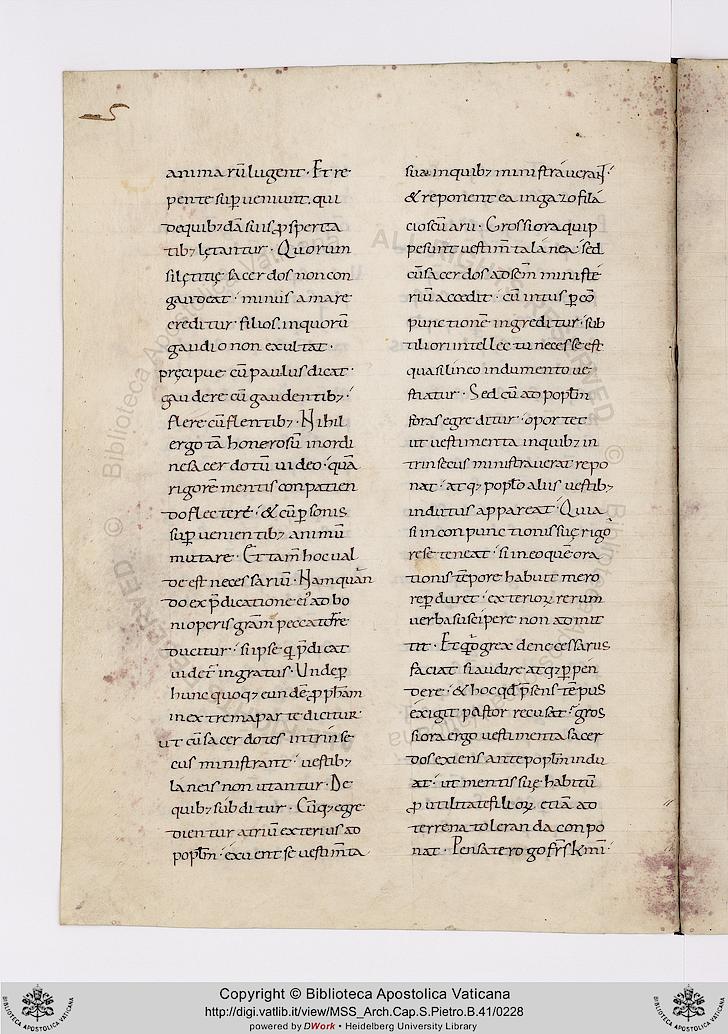 animarū lugent · Et re
pente sup̄ueniunt · qui
de quib; dā suis p̱speritа
tib; lętantur · Quorum
si lętitię sacerdos non con
gaudeat · minus amare
creditur · filios · in quorū
gaudio non exultat ·
pręcipue cū paulus dicat ·
gaudere cū gaudentib; ·
flere cū flentib; · Nihil
ergo tā honerosū in ordi
ne sacerdotū uideo · quā
rigorē mentis conpatien
do flectere · & cū p̱sonis
sup̄uenientib; animū
mutare · Et tam̄ hoc ual
de est necessariū · Nam quan
do ex p̄dicatione ei᾽ ad bo
ni operis grām peccator̄
ducitur · si ipse q̣ p̄dicat
uidet᷑ ingratus · Unde p̱
hunc quoq; eundē p̱ph̄am
in extrema parte dicitur
ut cū sacerdotes intrinse
cus ministrant · uestib;
laneis non utantur · De
quib; subditur · Cūq; egre
dientur atriū exterius ad
popl̄m · exuent se uestim̄ta
sua in quib; ministrauerant ·
& reponent ea in gazofila
cio sc̄uarii · Grossiora quip
pe sunt uestim̄ta lanea · sed
cū sacerdos ad sc̄m ministe
riū accedit · cū intus p̱ cō
punctionē ingreditur · sub
tiliori intellectu necesse est
quasi lineo indumento ue
stiatur · Sed cū ad popl̄m
foras egreditur · oportet
ut uestimenta in quib; in
trinsecus ministrauerat repo
nat · atq; popl̄o aliis uestib;
indutus appareat · Quia
si in conpunctionis suę rigo
re se teneat · si in eo quē ora
tionis tēpore habuit mero
re p̱duret · exteriorꝝ rerum
uerba suscipere non admit
tit · Et qd̄ grex de necessariis
faciat si audire atq; p̱pen
dere · & hoc qd̄ p̄sens tēpus
exigit pastor recusat · gros
siora ergo uestimenta sacer
dos exiens ante popl̄m indu
at · ut mentis suę habitū
p̱ utilitate filiorꝝ etiā ad
terrena toleranda conpo
nat · Pensate ergo fr̄s k̄mi ·
Copyright © Biblioteca Apostolica Vaticana
http://digi.vatlib.it/view/MSS_Arch.Cap.S.Pietro.B.41/0228
powered by DWork • Heidelberg University Library